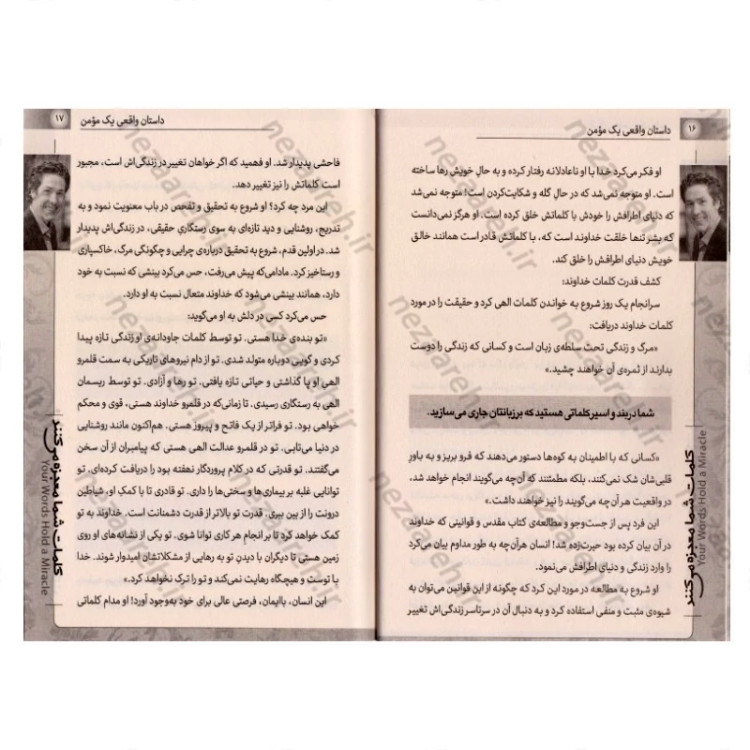 ۱۶
داستان واقعی یک مؤمن
او فکر می‌کرد خدا با او ناعادلانه رفتار کرده و به حالِ خویش رها ساخته
است. او متوجه نمی‌شد که در حالِ گله و شکایت‌کردن است! متوجه نمی‌شد
که دنیای اطرافش را خودش با کلماتش خلق کرده است. او هرگز نمی‌دانست
که بشر تنها خلقت خداوند است که، با کلماتش قادر است همانند خالق
خویش دنیای اطرافش را خلق کند.
کشف قدرت کلمات خداوند:
سرانجام یک روز شروع به خواندن کلمات الهی کرد و حقیقت را در مورد
کلمات خداوند دریافت:
«مرگ و زندگی تحت سلطه‌ی زبان است و کسانی که زندگی را دوست
بدارند از ثمره‌ی آن خواهند چشید.»
شما در بند و اسیر کلماتی هستید که بر زبانتان جاری می‌سازید.
«کسانی که با اطمینان به کوه‌ها دستور می‌دهند که فرو بریز و به باورِ
قلبی‌شان شک نمی‌کنند، بلکه مطمئنند که آن‌چه می‌گویند انجام خواهد شد،
در واقعیت هر آن‌چه می‌گویند را نیز خواهند داشت.»
این فرد پس از جست‌وجو و مطالعه‌ی کتاب مقدس و قوانینی که خداوند
در آن بیان کرده بود حیرت‌زده شد! انسان هرآن‌چه به طور مداوم بیان می‌کرد
را وارد زندگی و دنیای اطرافش می‌نمود.
او شروع به مطالعه در مورد این کرد که چگونه از این قوانین می‌توان به
شیوه‌ی مثبت و منفی استفاده کرد و به دنبال آن در سرتاسر زندگی‌اش تغییر
کلمات شما معجزه می‌کنند
Your Words Hold a Miracle
داستان واقعی یک مؤمن
۱۷
فاحشی پدیدار شد. او فهمید که اگر خواهان تغییر در زندگی‌اش است، مجبور
است کلماتش را نیز تغییر دهد.
این مرد چه کرد؟ او شروع به تحقیق و تفحص در باب معنویت نمود و به
تدریج، روشنایی و دید تازه‌ای به سوی رستگاریِ حقیقی، در زندگی‌اش پدیدار
شد. در اولین قدم، شروع به تحقیق درباره‌ی چرایی و چگونگی مرگ، خاکسپاری
و رستاخیز کرد. مادامی‌که پیش می‌رفت، حس می‌کرد بینشی که نسبت به خود
دارد، همانند بینشی می‌شود که خداوند متعال نسبت به او دارد.
حس می‌کرد کسی در دلش به او می‌گوید:
«تو بنده‌ی خدا هستی. تو توسط کلمات جاودانه‌ی او زندگی تازه پیدا
کردی و گویی دوباره متولد شدی. تو از دام نیروهای تاریکی به سمت قلمرو
الهی او پا گذاشتی و حیاتی تازه یافتی. تو رها و آزادی. تو توسط ریسمان
الهی به رستگاری رسیدی. تا زمانی‌که در قلمرو خداوند هستی، قوی و محکم
خواهی بود. تو فراتر از یک فاتح و پیروز هستی. هم‌اکنون مانند روشنایی
در دنیا می‌تابی. تو در قلمرو عدالت الهی هستی که پیامبران از آن سخن
می‌گفتند. تو قدرتی که در کلام پروردگار نهفته بود را دریافت کرده‌ای. تو
توانایی غلبه بر بیماری‌ها و سختی‌ها را داری. تو قادری تا با کمکِ او، شیاطینِ
درونت را از بین ببری. قدرت تو بالاتر از قدرت دشمنانت است. خداوند به تو
کمک خواهد کرد تا بر انجام هر کاری توانا شوی. تو یکی از نشانه‌های او روی
زمین هستی تا دیگران با دیدنِ تو به رهایی از مشکلاتشان امیدوار شوند. خدا
با توست و هیچگاه رهایت نمی‌کند و تو را ترک نخواهد کرد.»
این انسان، باایمان، فرصتی عالی برای خود به‌وجود آورد! او مدام کلماتی
کلمات شما معجزه می‌کنند
Your Words Hold a Miracle
nezaareh.ir